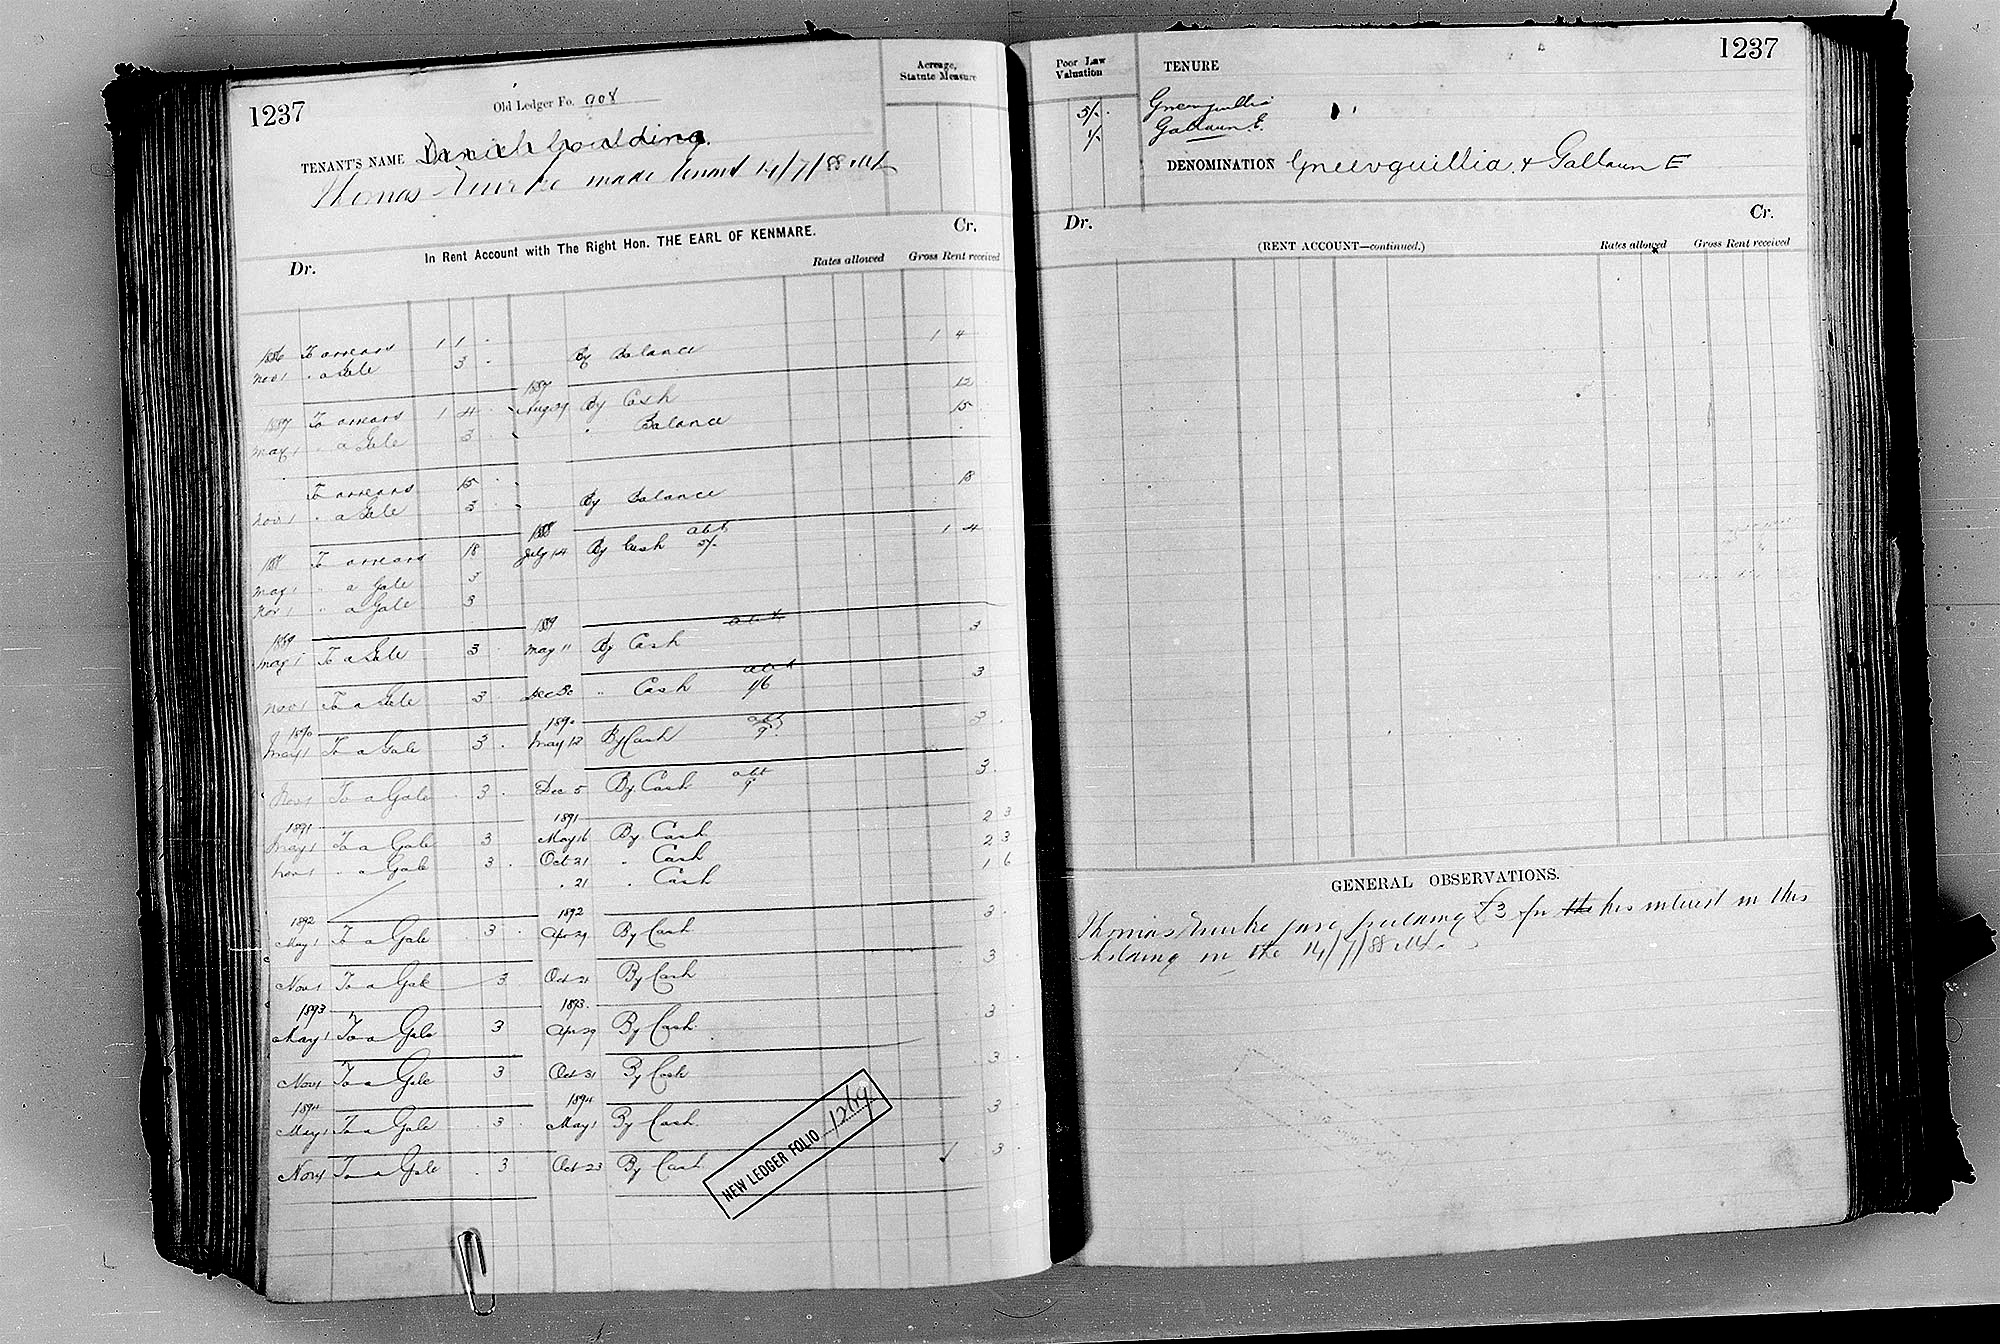 1237
Old Ledger Fo. 908
Acreage,
Statute Measure
TENANT'S NAME Goulding.
Thomas made tenant 14/7/88
Dr.
In Rent Account with The Right Hon. THE EARL OF KENMARE.
Cr.
Rates allowed
Gross Rent received
1886 To arrears 1 1 .
Nov 1 " a Gale 3 . By Balance 1 4
1887
1887 To arrears 1 4 . Aug 29 By Cash 12
May 1 " a Gale 3 " Balance 15
To arrears 15
Nov 1 " a Gale 3 By Balance 18
1888
188 To arrears 18 July 14 By Cash abt 5/- 1 4
May 1 " a Gale 3
Nov 1 " a Gale 3
1889 1889 abt
May 1 To a Gale 3 May 11 By Cash 3
Nov 1 To a Gale 3 Dec 30 " Cash abt 1/6 3
1890 1890
May 1 To a Gale 3 . May 12 By Cash abt 9 3
Nov 1 To a Gale 3 . Dec 5 By Cash abt 9 3
1891 1891
May 1 To a Gale 3 May 16 By Cash 2 3
Nov 1 " a Gale 3 . Oct 21 " Cash 2 3
" 21 " Cash 1 6
1892 1892
May 1 To a Gale 3 Apr 29 By Cash 3
Nov 1 To a Gale 3 Oct 21 By Cash 3
1893 1893
May 1 To a Gale 3 Apr 29 By Cash 3
Nov 1 To a Gale 3 Oct 31 By Cash 3
1894 1894
May 1 To a Gale 3 May 1 By Cash 3
Nov 1 To a Gale 3 Oct 23 By Cash 3
NEW LEDGER FOLIO 1269
Poor Law
Valuation
TENURE
1237
5/- Gneevguillia
1/- Gallaun E.
DENOMINATION Gneevguillia & Gallaun E
Dr.
Cr.
(RENT ACCOUNT—continued.)
Rates allowed
Gross Rent received
GENERAL OBSERVATIONS.
Thomas gave Goulding £3 for the his interest in this
holding on the 14/7/88